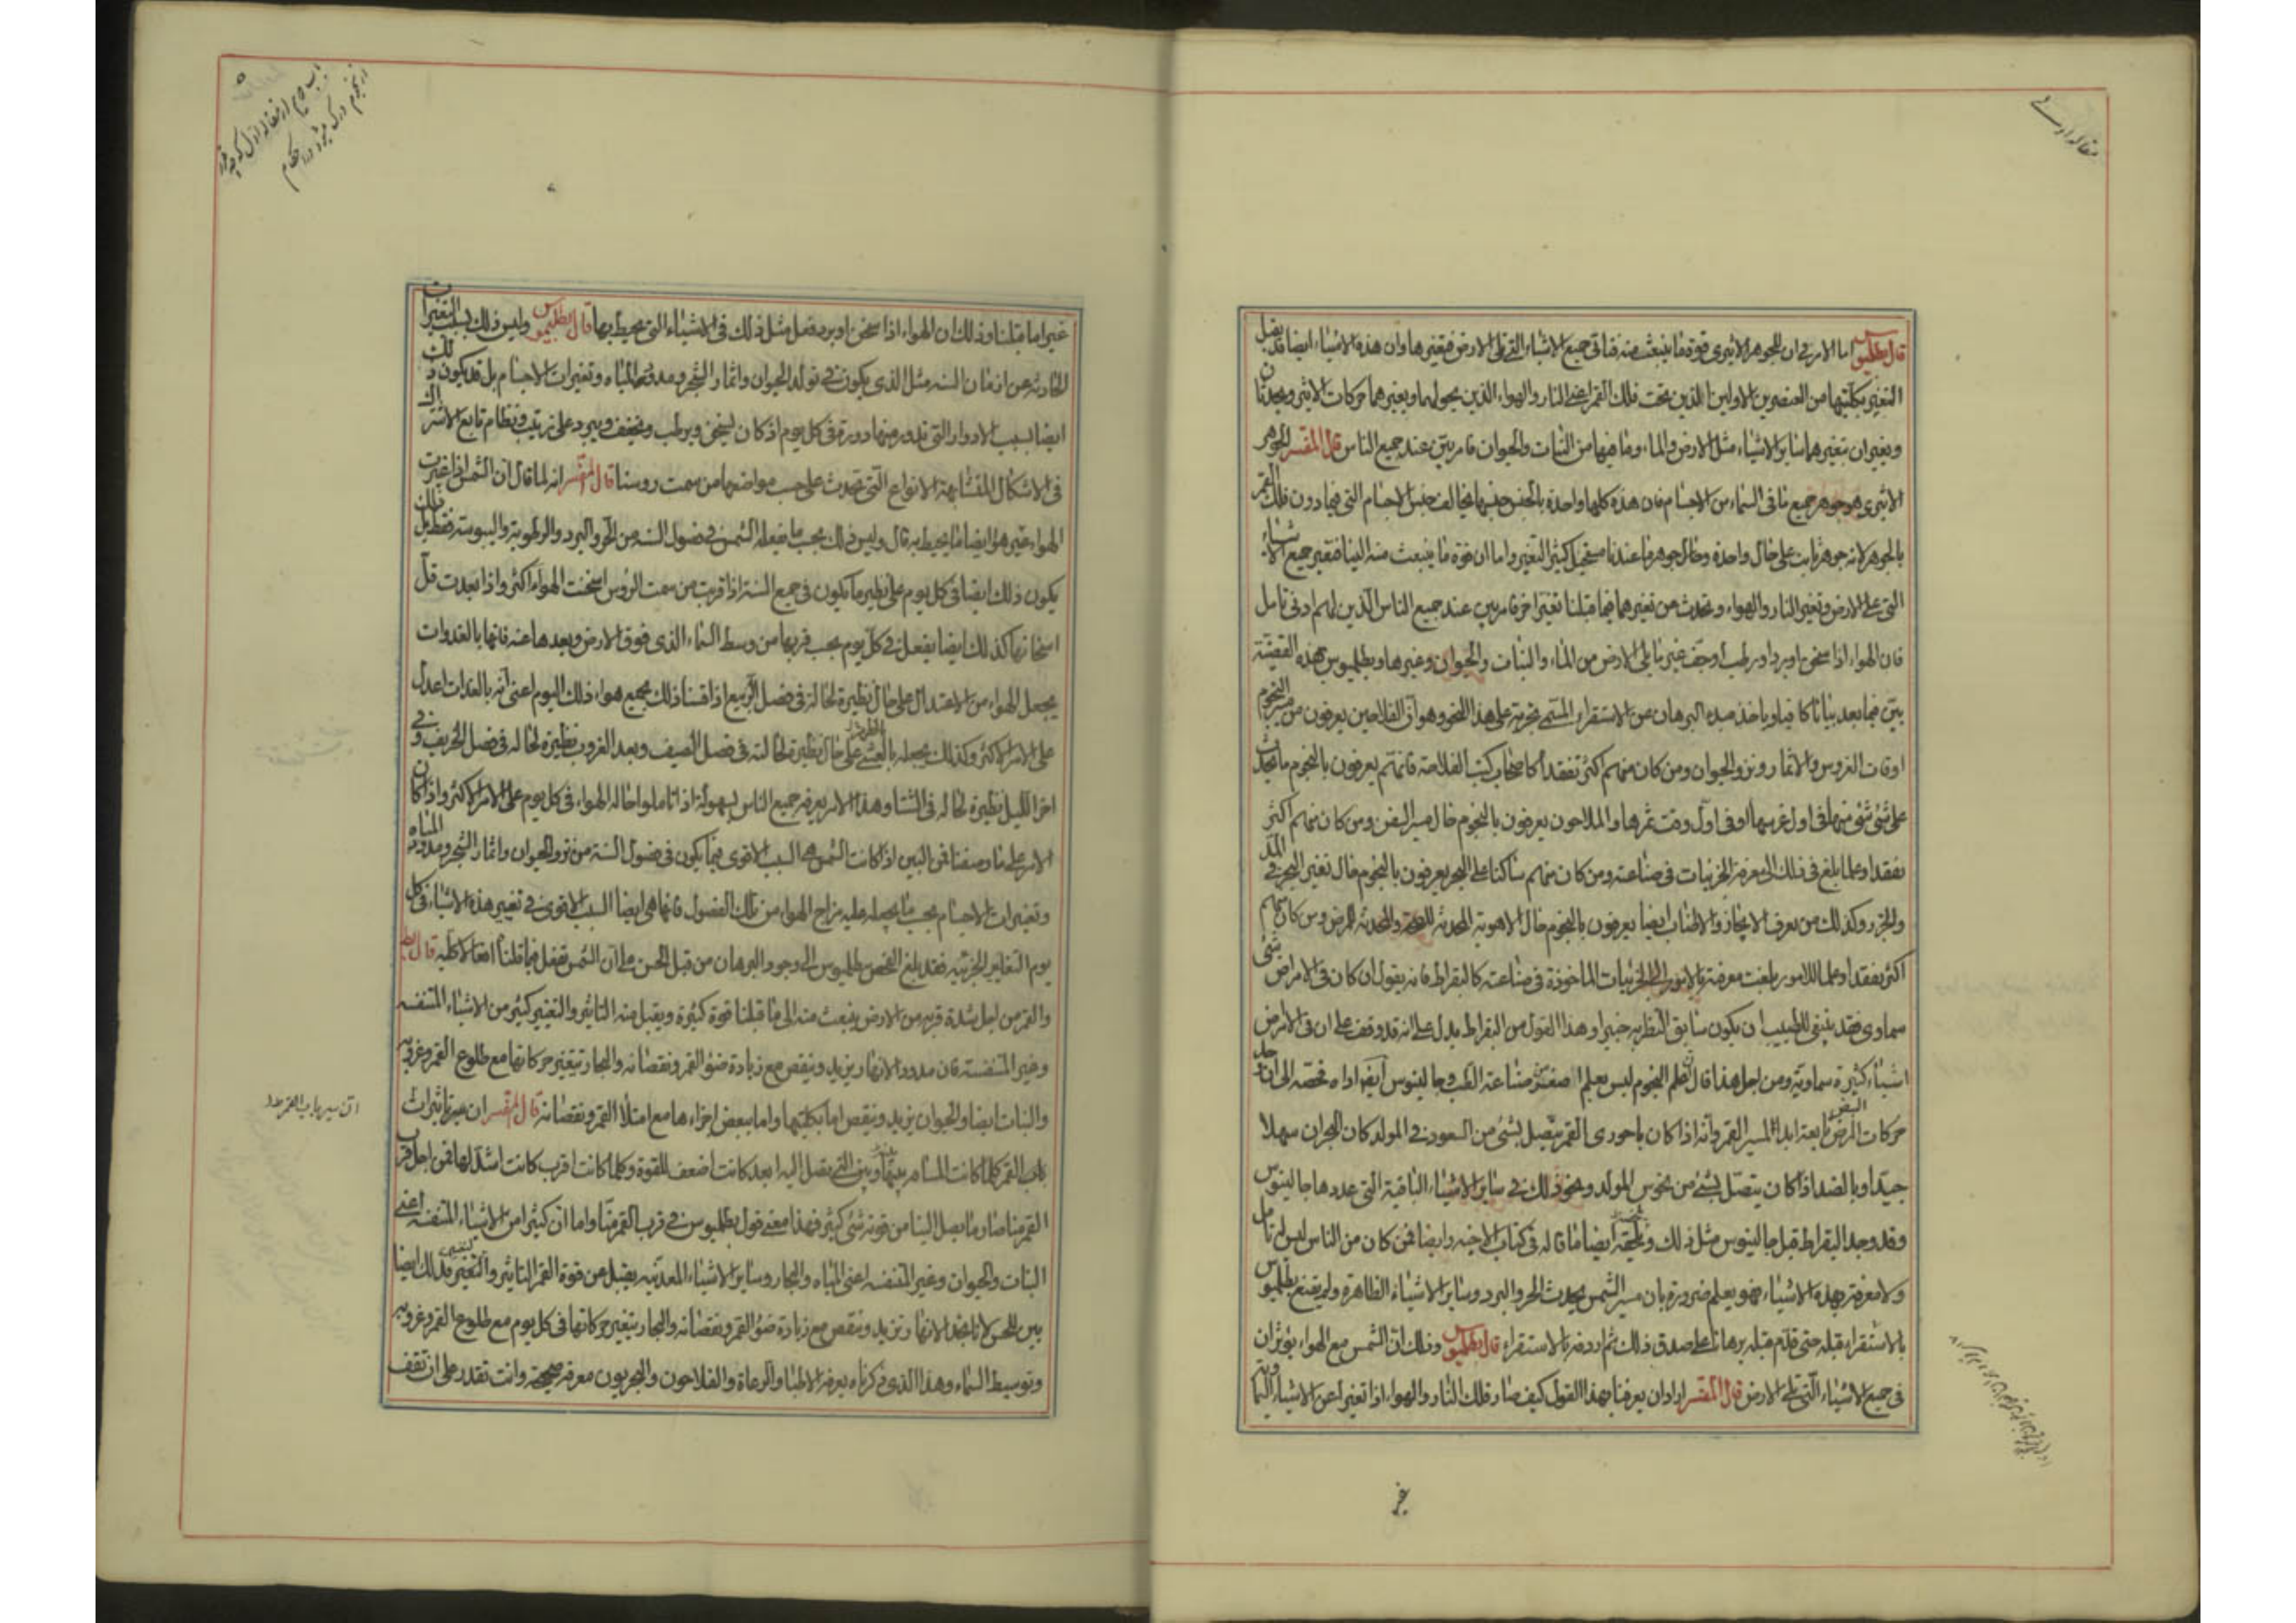 قال بطلميوس اما الامر في ان للجوهر الاثيري قوة ما ينبعث منه فتاتي جميع الاشياء التي تلي الارض فتغيرها وان هذه الاشياء ايضا قد يقبل
التغير بكليتها من العنصرين الاولين الذين تحت فلك القمر اعني النار والهواء الذين يحولهما ويغيرهما حركات الاثير وبعدنا
ويغيران بتغيرهما سائر الاشياء مثل الارض والماء وما فيهما من النبات والحيوان فامر بين عند جميع الناس قال المفسر الجوهر
الاثيري هو جوهر جميع ما في السماء من الاجسام فان هذه كلها واحدة بالجنس جنسها مخالف جنس الاجسام التي فيما دون فلك القمر
بالجوهر لانه جوهر ثابت على حال واحدة وحال جوهر ما عندنا مستحيل كثير التغير واما ان قوة ما ينبعث منه الينا فتغير جميع الاشياء
التي على الارض وتغير النار والهواء ويحدث من تغيرهما فيما قبلنا تغيرا اخر فامر بين عند جميع الناس الذين لهم ادنى تامل
فان الهواء اذا سخن او برد او رطب او جف غير ما يلي الارض من الماء والنبات والحيوان وغيرها وبطلميوس هذه القضية
بين فيما بعد بيانا كافيا وياخذ مبدء البرهان من الاستقراء المسمى تجربة على هذا النحو وهو ان الفلاحين يعرفون من مسير النجوم
اوقات الغروس والاثمار ونزو الحيوان ومن كان منهم اكثر تفقدا كاصحاب كتب الفلاحة فانهم يعرفون بالنجوم ما يحدث
على شئ شئ منها في اول غرسها او في اول وقت ثمرها والملاحون يعرفون بالنجوم حال مسير السفن ومن كان منهم اكثر
تفقدا وعلما بلغ في ذلك الى معرفة الجزئيات في صناعته ومن كان منهم ساكنا على البحر يعرفون بالنجوم حال تغير البحر في المد
والجزر وكذلك من يعرف الايجاز والاطناب ايضا يعرفون بالنجوم حال الاهوية المحدثة للصحة والمحدثة للمرض ومن كان منهم
اكثر تفقدا وعلما للامور بلغت معرفته بالامور الجزئيات الماخوذة في صناعته كالبقراط فانه يقول ان كان في الامراض شئ
سماوي فقد ينبغي للطبيب ان يكون سابق النظر به خبيرا وهذا القول من البقراط يدل على انه قد وقف على ان في الامراض
اشياء كثيرة سماوية ومن اجل هذا قال فعلم النجوم ليس بعلم اصغر من صناعة الطب وجالينوس
حركات المرض تابعة ابدا لمسير القمر وانه اذا كان باحورى القمر يتصل بشئ من السعود في المولد كان البحران سهلا
جيدا وبالضد اذا كان يتصل بشئ من نحوس المولد ونحو ذلك في سائر الاشياء الباقية التي عددها جالينوس
وقد وجد البقراط قبل جالينوس مثل ذلك ايضا ما قاله في كتاب الاجنة وايضا فمن كان من الناس ليس له تامل
ولا معرفة بهذه الاشياء فهو يعلم ضرورة بان مسير الشمس يحدث الحر والبرد وسائر الاشياء الظاهرة ولم يقنع بطلميوس
بالاستقراء قبله حتى قدم قبله برهانا على صدق ذلك ثم اردفه بالاستقراء قال بطلميوس وذلك ان الشمس مع الهواء يؤثران
في جميع الاشياء التي تلي الارض قال المفسر اراد ان يعرفنا بهذا القول كيف صار فلك النار والهواء اذا تغيرا عن الاشياء السماوية
غير
غيرا ما قبلنا وذلك ان الهواء اذا سخن او برد فعل مثل ذلك في الاشياء التي يحيط بها قال بطلميوس وليس ذلك بسبب التغيرات
الحادثة عن ازمان السنة مثل الذي يكون في تولد الحيوان واثمار الشجر ومدود المياه وتغيرات الاجسام بل قد يكون ذلك
ايضا بسبب الادوار التي تدور منها دورة في كل يوم اذ كان يسخن ويرطب ويجفف ويبرد على ترتيب ونظام تابع الاشتراك
في الاشكال المتشابهة الانواع التي تحدث على حسب مواضعها من سمت روسنا قال المفسر انه لما قال ان الشمس اذا غيرت
الهواء غير هو ايضا ما يحيط به قال وليس ذلك بحسب ما تفعله الشمس في فصول السنة من الحر والبرد والرطوبة واليبوسة فقط بل
يكون ذلك ايضا في كل يوم على نظير ما يكون في جميع السنة اذا قربت من سمت الرؤس اسخنت الهواء اكثر واذا بعدت قل
اسخانها كذلك ايضا يفعل في كل يوم بحسب قربها من وسط السماء الذي فوق الارض وبعدها عنه فانها بالغدوات
يجعل الهواء من الاعتدال على حال نظيرة لحاله في فصل الربيع اذا قسنا ذلك بجميع هواء ذلك اليوم اعني انه بالغدات اعدل
على الامر الاكثر وكذلك يجعله بالعشي على حال نظيرة لحالته في فصل الصيف وبعد الغروب نظيرة لحاله في فصل الخريف وفي
اخر الليل نظيرة لحاله في الشتا وهذا الامر يعرفه جميع الناس بسهولة اذا تاملوا حال الهواء في كل يوم على الامر الاكثر واذا كان
الامر على ما وصفنا فمن البين اذا كانت الشمس هي السبب الاقوى فيما يكون في فصول السنة من نزو الحيوان واثمار الشجر ومدود المياه
وتغيرات الاجسام بحسب ما يجعله عليه مزاج الهواء من تلك الفصول فانها هي ايضا السبب الاقوى في تغيير هذه الاشياء في كل
يوم التغاير الجزئية فقد بلغ الفحص بطلميوس الى وجود البرهان من قبل الحس على ان الشمس تفعل فيما قبلنا قال بط
والقمر من اجل شدة قربه من الارض ينبعث منه الى ما قبلنا قوة كثيرة ويقبل منه التاثير والتغير كثير من الاشياء المتنفسة
وغير المتنفسة فان مدود الانهار يزيد وينقص مع زيادة ضوء القمر ونقصانه والبحار يتغير حركاتها مع طلوع القمر وغروبه
والنبات ايضا والحيوان يزيد وينقص اما بكليتها واما ببعض اجزاءها مع امتلأ القمر ونقصانه قال المفسر ان تاثيرات
القمر كلما كانت المسافة بينها وبين التي يصل اليه ابعد كانت اضعف للقوة وكلما كانت اقرب كانت اشد لها فمن اجل قرب
القمر منا صار ما يصل الينا من قوته شئ كثير فهذا معنى قول بطلميوس في قرب القمر منا واما ان كثيرا من الاشياء المتنفسة اعني
النبات والحيوان وغير المتنفسة اعني المياه والبحار وسائر الاشياء المعدنية يقبل من قوة القمر التاثير والتغير فذلك ايضا
بين للحس لانا نجد الانهار تزيد وينقص مع زيادة ضوء القمر ونقصانه والبحار يتغير حركاتها في كل يوم مع طلوع القمر وغروبه
وتوسيطه السماء وهذا الذي ذكرناه يعرفه الاطباء والرعاة والفلاحون والبحريون معرفة صحيحة وانت تقدر على ان تقف